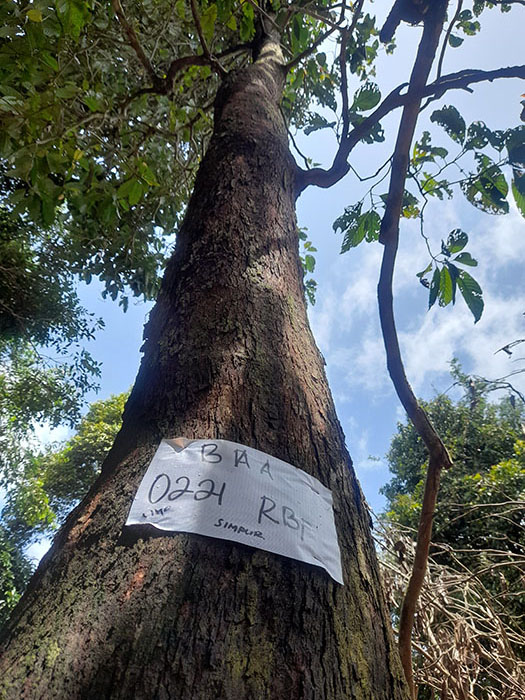 BAA
0221 RBT
SIMPUR